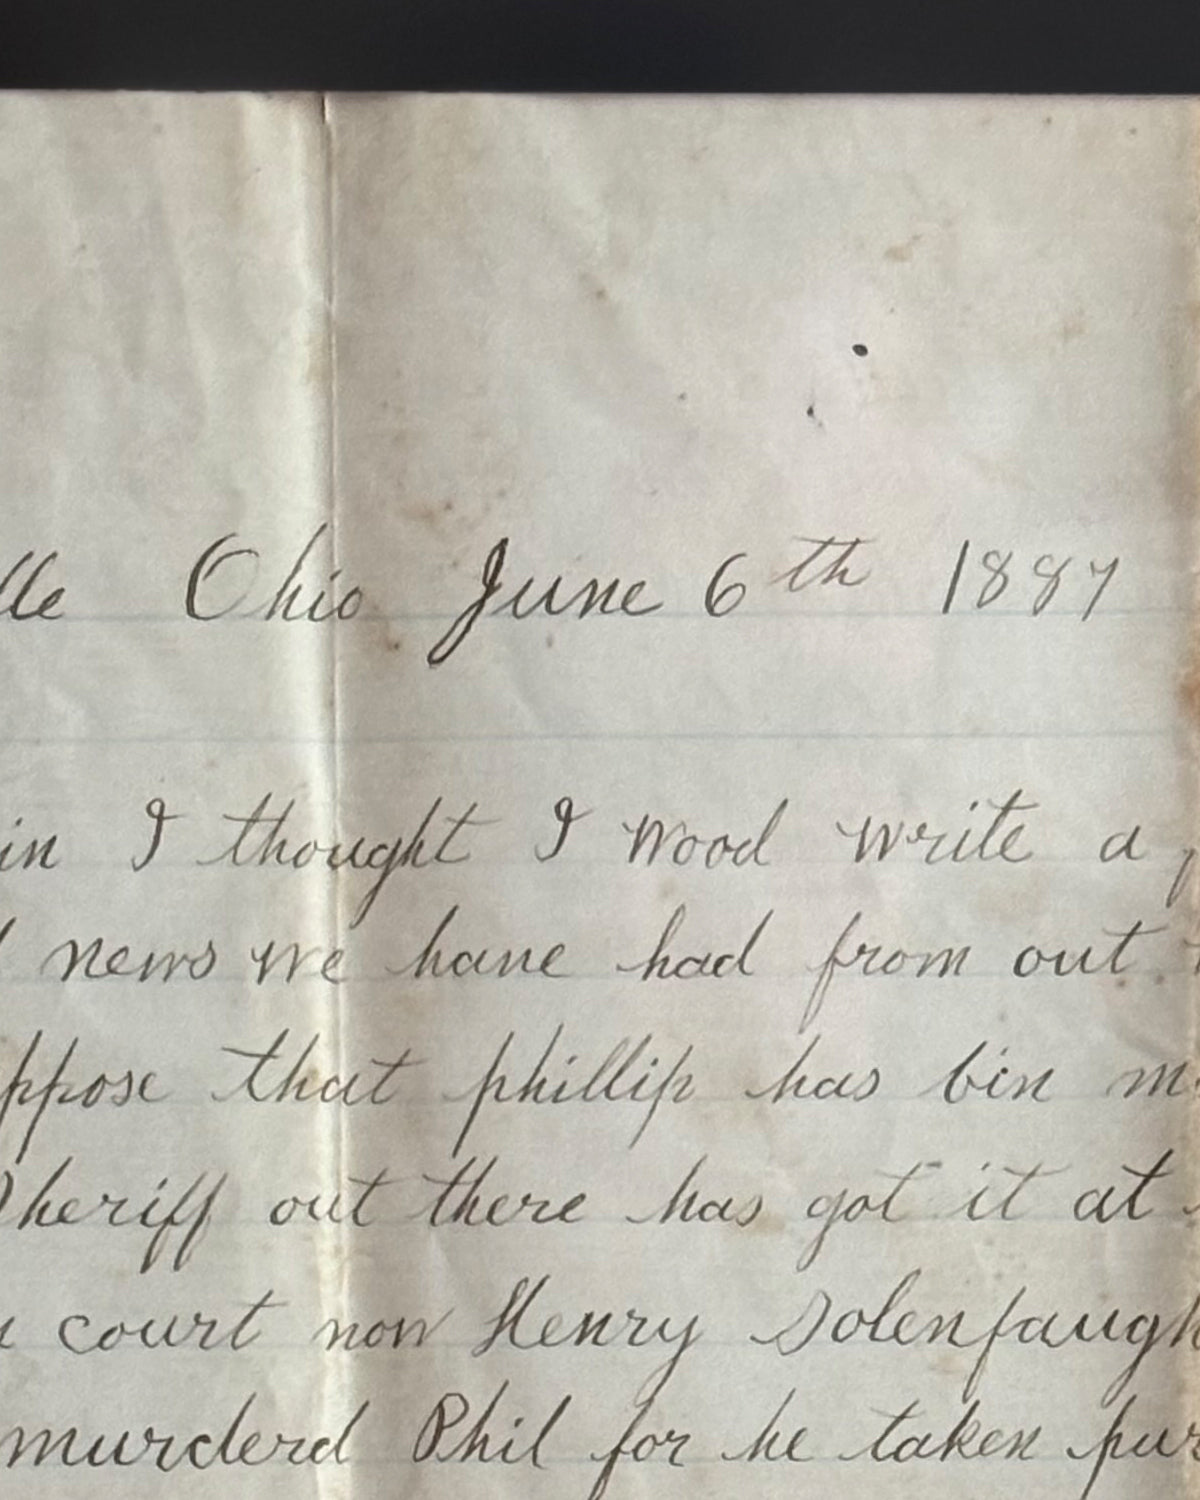 lle Ohio June 6th 1887
in I thought I wood write a
news we have had from out
ppose that phillip has bin m
Sheriff out there has got it at
court now Henry Solenfaugh
murderd Phil for he taken pur